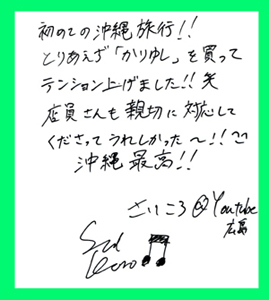 初めての沖縄旅行!!
とりあえず「かりゆし」を買って
テンション上げました!!笑
店員さんも親切に対応して
くださってうれしかった〜!!
沖縄最高!!
さいころ@Youtube
広島